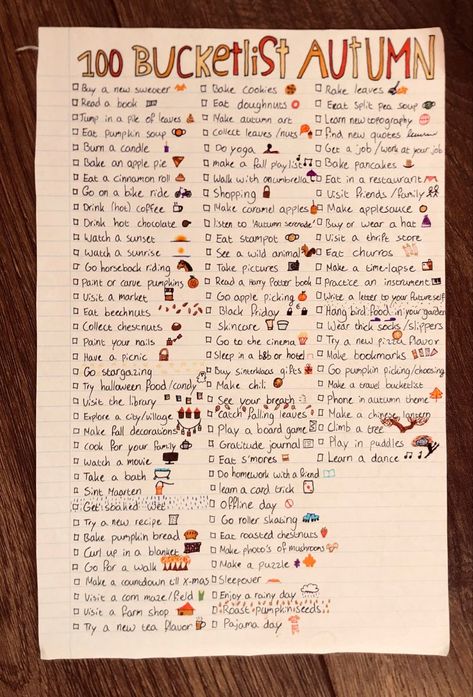 100 BUCKETLIST AUTUMN
Buy a new sweater
Read a book
Jump in a pile of leaves
Eat pumpkin soup
Burn a candle
Bake an apple pie
Eat a cinnamon roll
Go on a bike ride
Drink (hot) coffee
Drink hot chocolate
Watch a sunset
Watch a sunrise
Go horseback riding
Paint or carve pumpkins
Visit a market
Eat beechnuts
Collect chestnuts
Paint your nails
Have a picnic
Go stargazing
Try halloween food/candy
Visit the library
Explore a city/village
Make fall decorations
Cook for your family
Watch a movie
Take a bath
Sint Maarten
Get soaked wet
Try a new recipe
Bake pumpkin bread
Curl up in a blanket
Go for a walk
Make a countdown till X-mas
Visit a corn maze/field
Visit a farm shop
Try a new tea flavor
Bake cookies
Eat doughnuts
Make autumn art
Collect leaves/nuts
Do yoga
Make a fall playlist
Walk with an umbrella
Shopping
Make caramel apples
Listen to 'Autumn serenade'
Eat stampot
See a wild animal
Take pictures
Read a Harry Potter book
Go apple picking
Black Friday
Skincare
Go to the cinema
Sleep in a b&b or hotel
Buy sinterklaas gifts
Make chili
See your breath
Catch falling leaves
Play a board game
Gratitude journal
Eat s'mores
Do homework with a friend
learn a card trick
Offline day
Go roller skating
Eat roasted chestnuts
Make photo's of mushrooms
Make a puzzle
Sleepover
Enjoy a rainy day
Roast pumpkinseeds
Pajama day
Rake leaves
Eeat Split pea soup
Learn new topography
find new quotes
Get a job / work at your job
Bake pancakes
Eat in a restaurant
Visit friends / family
Make applesauce
Buy or wear a hat
Visit a thrift store
Eat churros
Make a time-lapse
Practice an instrument
Write a letter to your future self
Hang bird food in your garden
Wear thick socks / slippers
Try a new pizza flavor
Make bookmarks
Go pumpkin picking/choosing
Make a travel bucketlist
Phone in autumn theme
Make a chinese lantern
Climb a tree
Play in puddles
Learn a dance